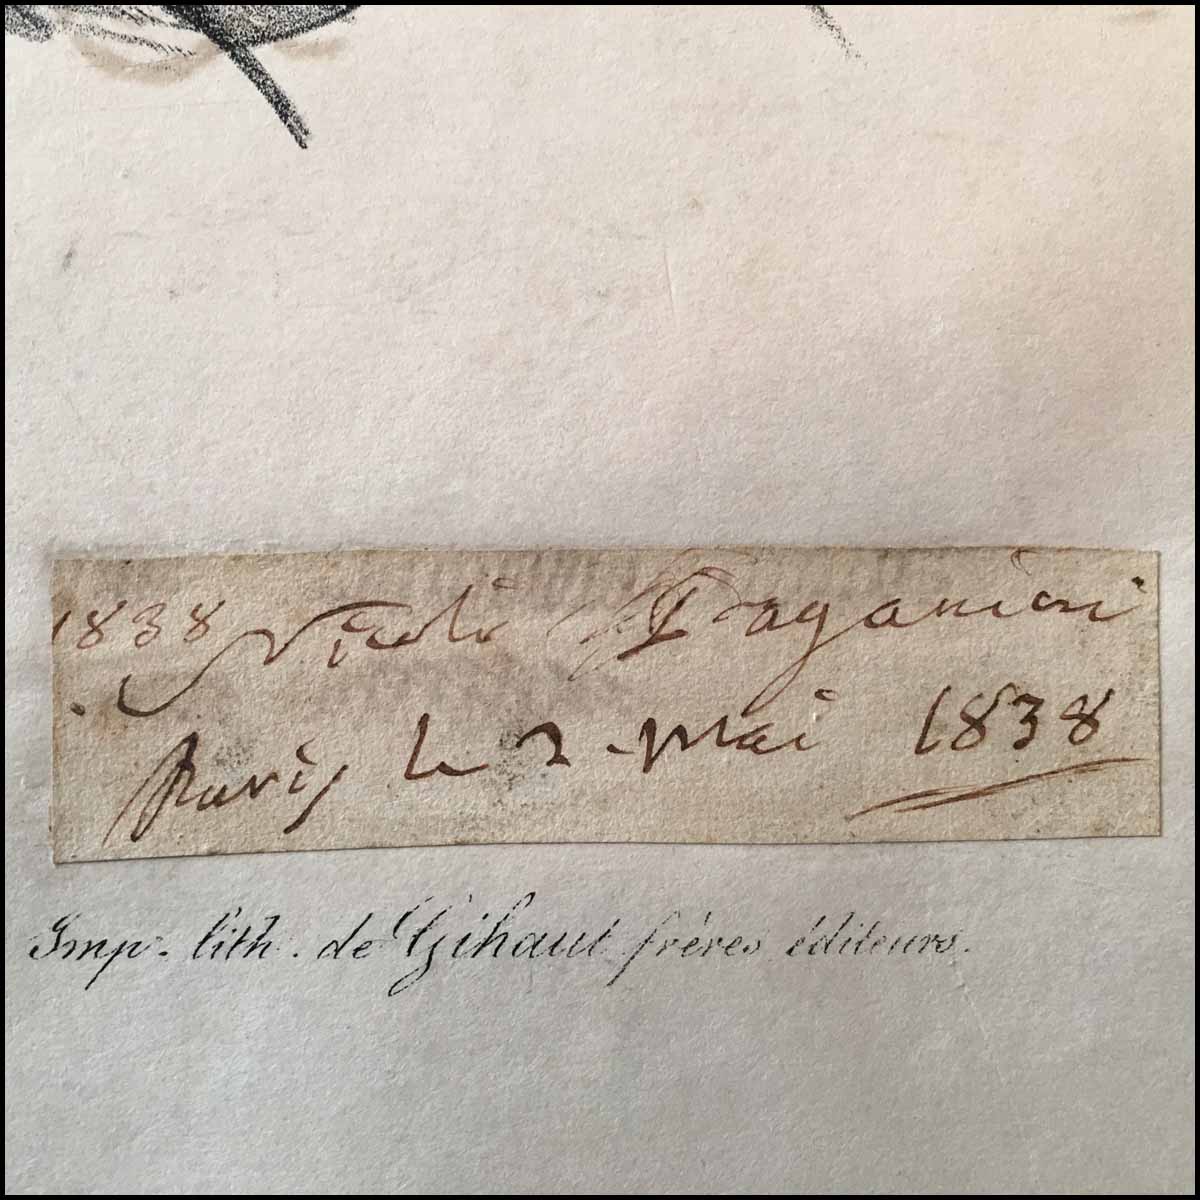 1838 Nicolò Paganini
Paris le 2 Mai 1838
Imp. lith. de Gihaut frères éditeurs.